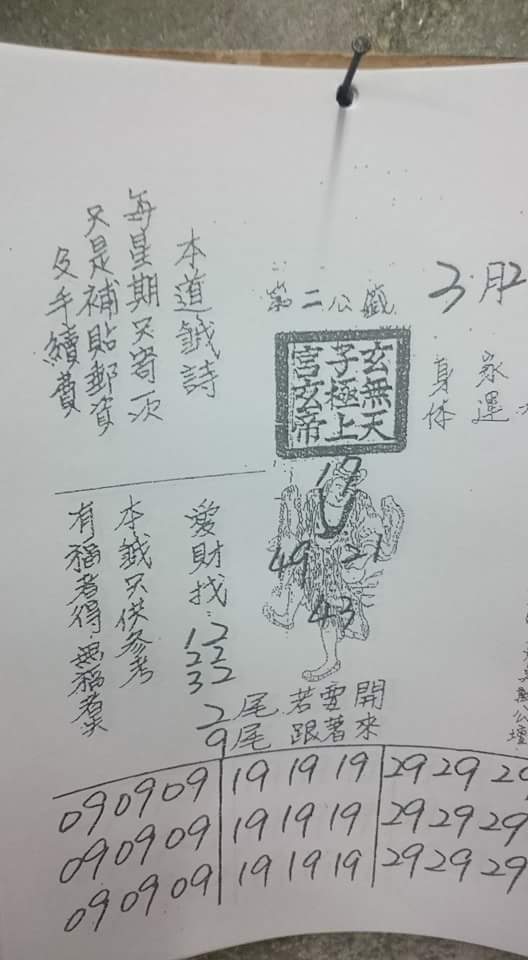 3月2
家運
身体
第二公籤
玄子宮
無極玄
天上帝
19
49 21
43
本道籤詩
每星期只寄一次
只是補貼郵資
及手續費
愛財找:
12
22
32
本籤只供參考
有福者得,無福者失
2尾若要開
9尾跟著來
09 09 09 19 19 19 29 29 29
09 09 09 19 19 19 29 29 29
09 09 09 19 19 19 29 29 29
萬公壇